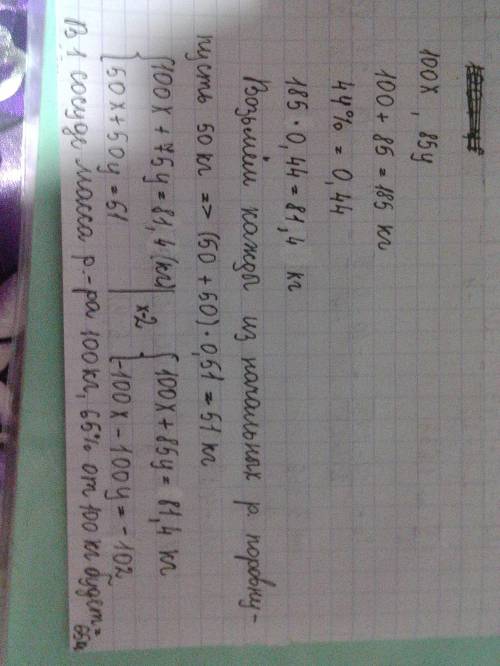 100x, 85y
100 + 85 = 185 кг
44% = 0,44
185 · 0,44 = 81,4 кг
Возьмём кажды из начальных р. поровну-
пусть 50 кг => (50 + 50) · 0,51 = 51 кг
{100x + 85y = 81,4 (кг) | x-2 {100x + 85y = 81,4 кг
{50x + 50y = 51 {-100x - 100y = -102
В 1 сосуде масса р-ра 100 кг, 65% от 100 кг будет =